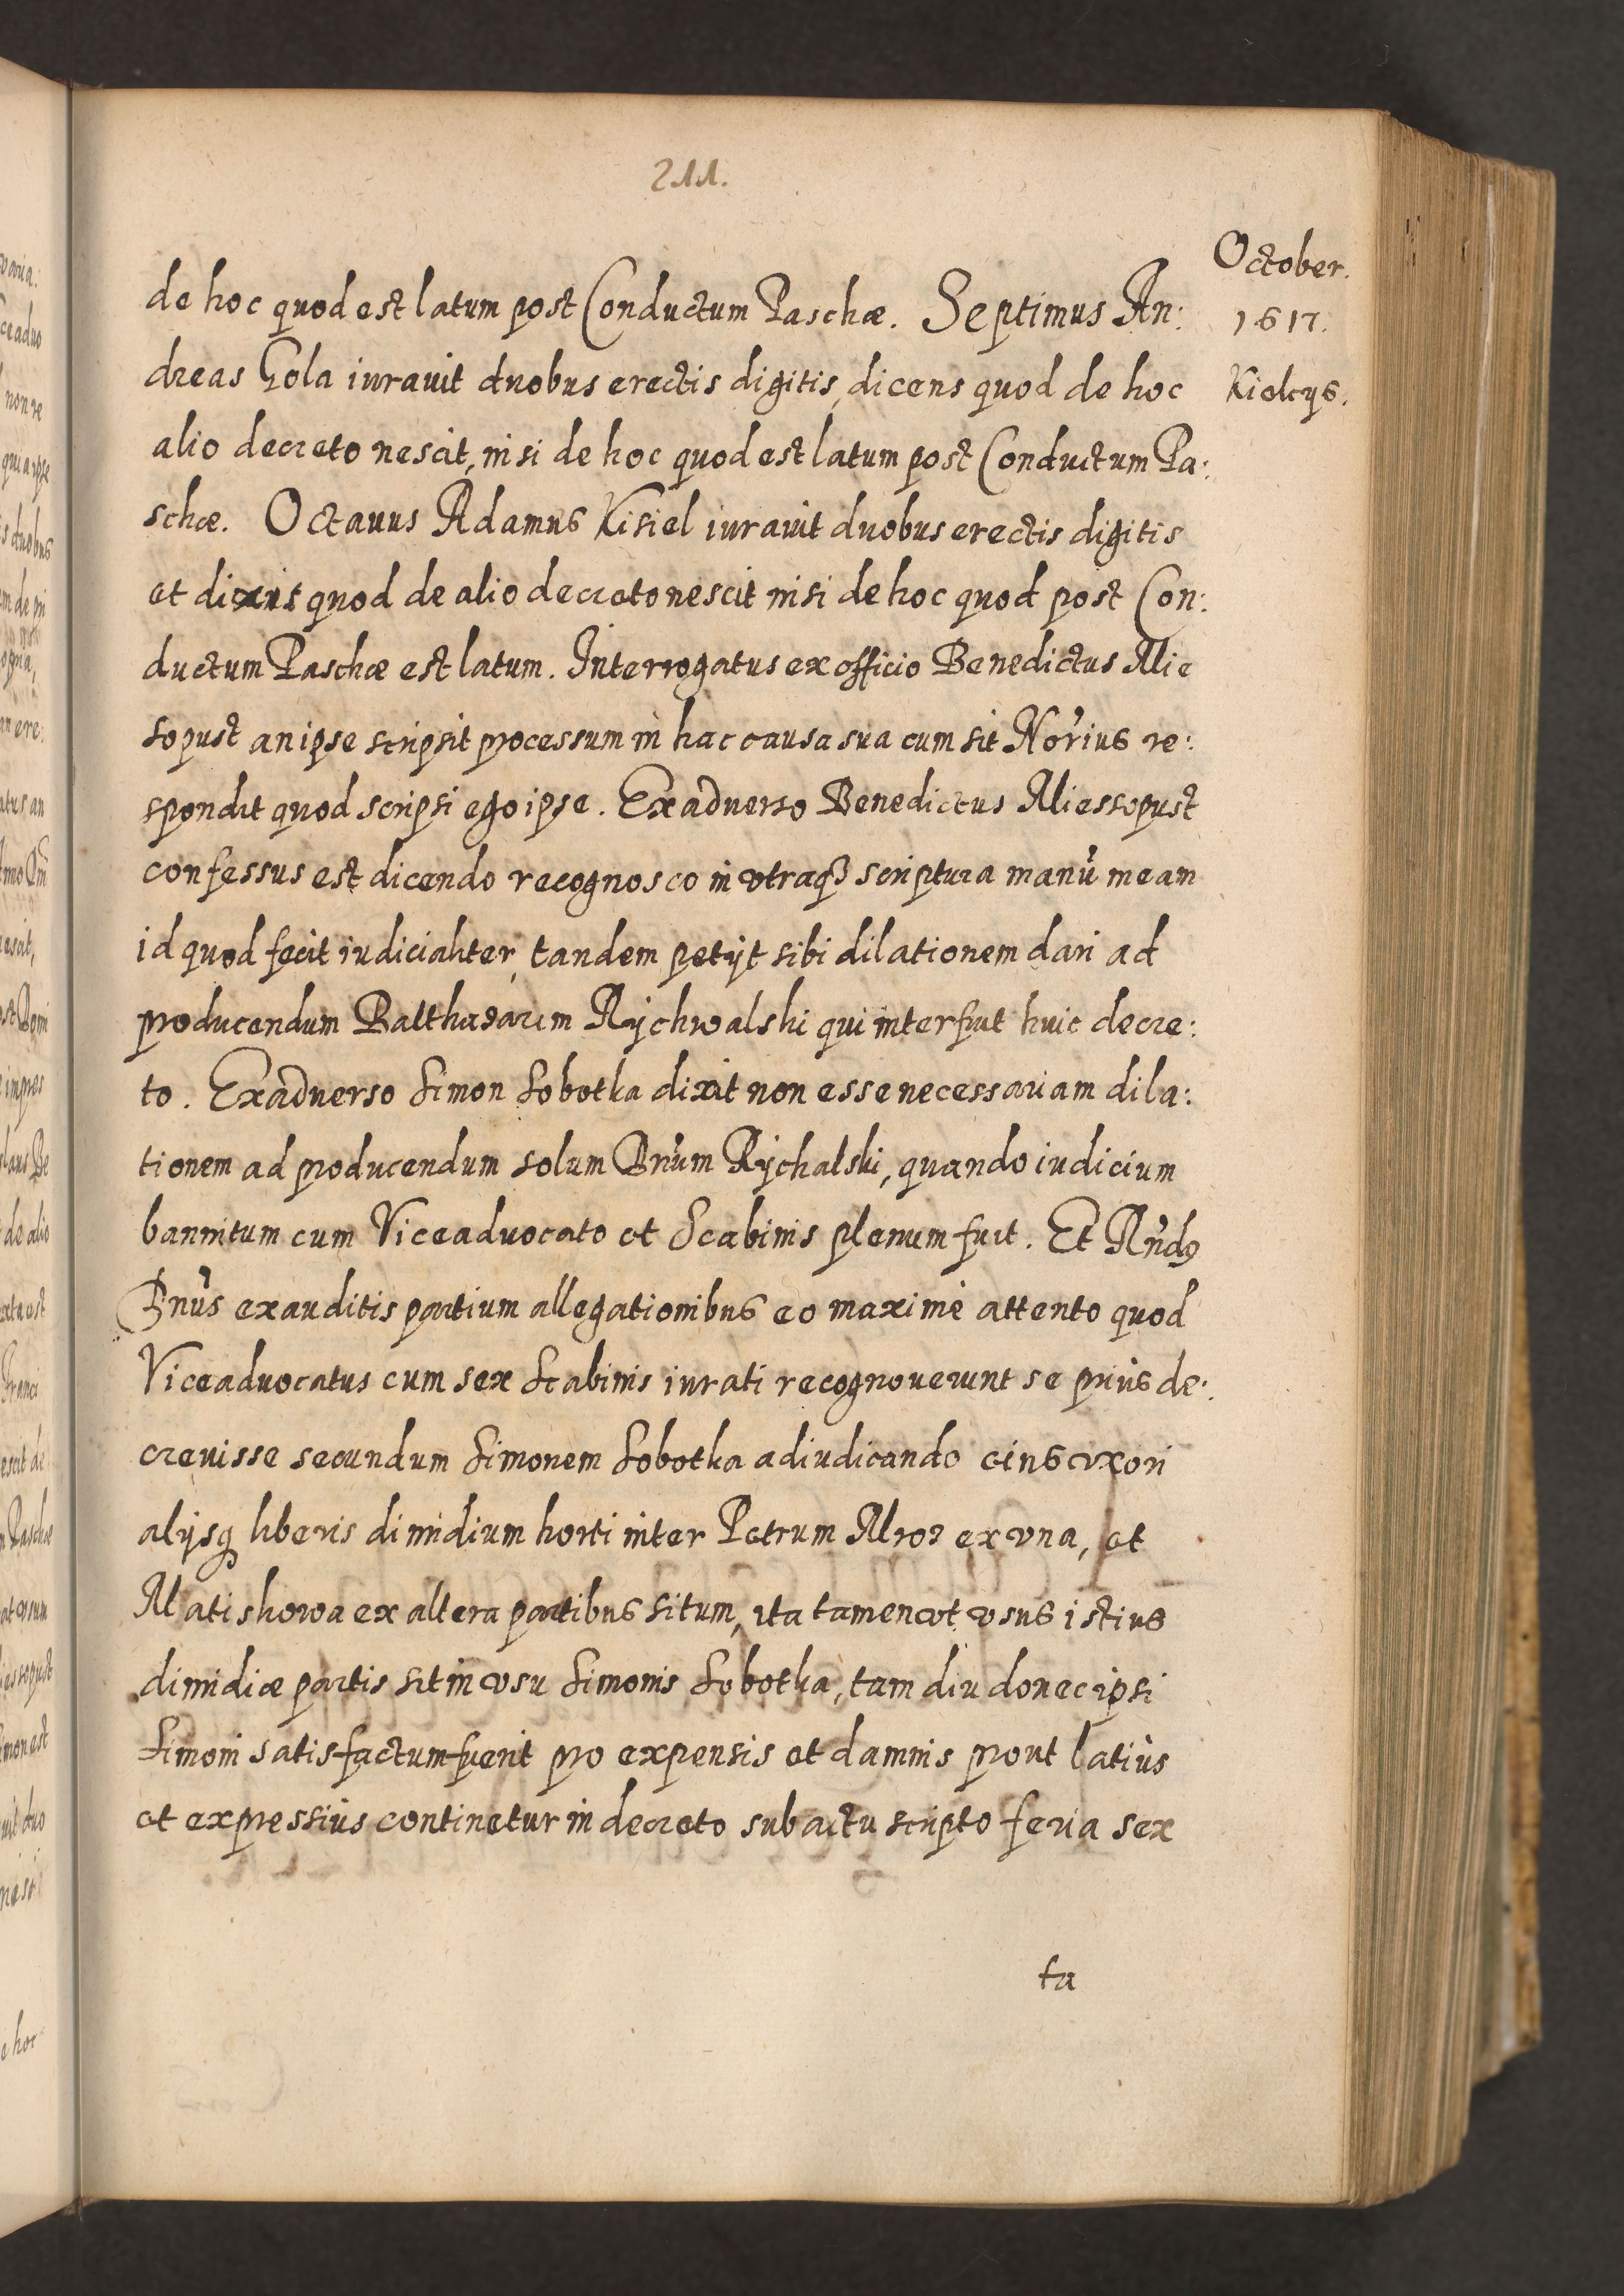 211.
October.
1617.
Kielcys.
de hoc quod est latum post Conductum Paschæ. Septimus An:
dreas Gola iurauit duobus erectis digitis, dicens quod de hoc
alio decreto nescit, nisi de hoc quod est latum post Conductum Pa:
schæ. Octauus Adamus Kisiel iurauit duobus erectis digitis
et dixit quod de alio decreto nescit nisi de hoc quod post Con:
ductum Paschæ est latum. Interrogatus ex officio Benedictus Mie
sopust an ipse scripsit processum in hac causa sua cum sit No'rius re:
spondit quod scripsi ego ipse. Ex aduerso Benedictus Miessopust
confessus est dicendo recognosco in vtraqȝ scriptura manū meam
id quod fecit iudicialiter, tandem petijt sibi dilationem dari ad
producendum Balthasarem Rychwalski qui interfuit huic decre:
to. Ex aduerso Simon Sobotka dixit non esse necessariam dila:
tionem ad producendum solum Dn̄um Rychalski, quando iudicium
bannitum cum Viceaduocato et Scabinis plenum fuit. Et R̄nds
Dn̄us exauditis partium allegationibus eo maximè attento quod
Viceaduocatus cum sex Scabinis iurati recognouerunt se priùs de:
creuisse secundum Simonem Sobotka adiudicando eius vxori
alijsq liberis dimidium horti inter Petrum Mroz ex vna, et
Matiskowa ex altera partibus situm, ita tamen vt vsus istius
dimidiæ partis sit in vsu Simonis Sobotka, tam diu donec ipsi
Simoni satisfactum fuerit pro expensis et damnis prout latiùs
et expressiùs continetur in decreto sub actu scripto feria sex
ta